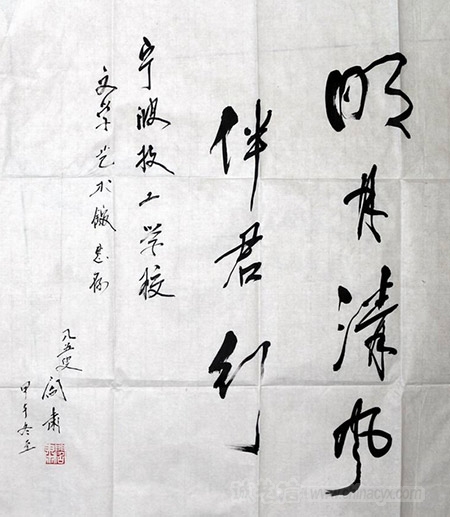 明月清风
伴君行
宁波技工学校
文学艺术馆惠存
八五叟 阎肃
甲午冬至